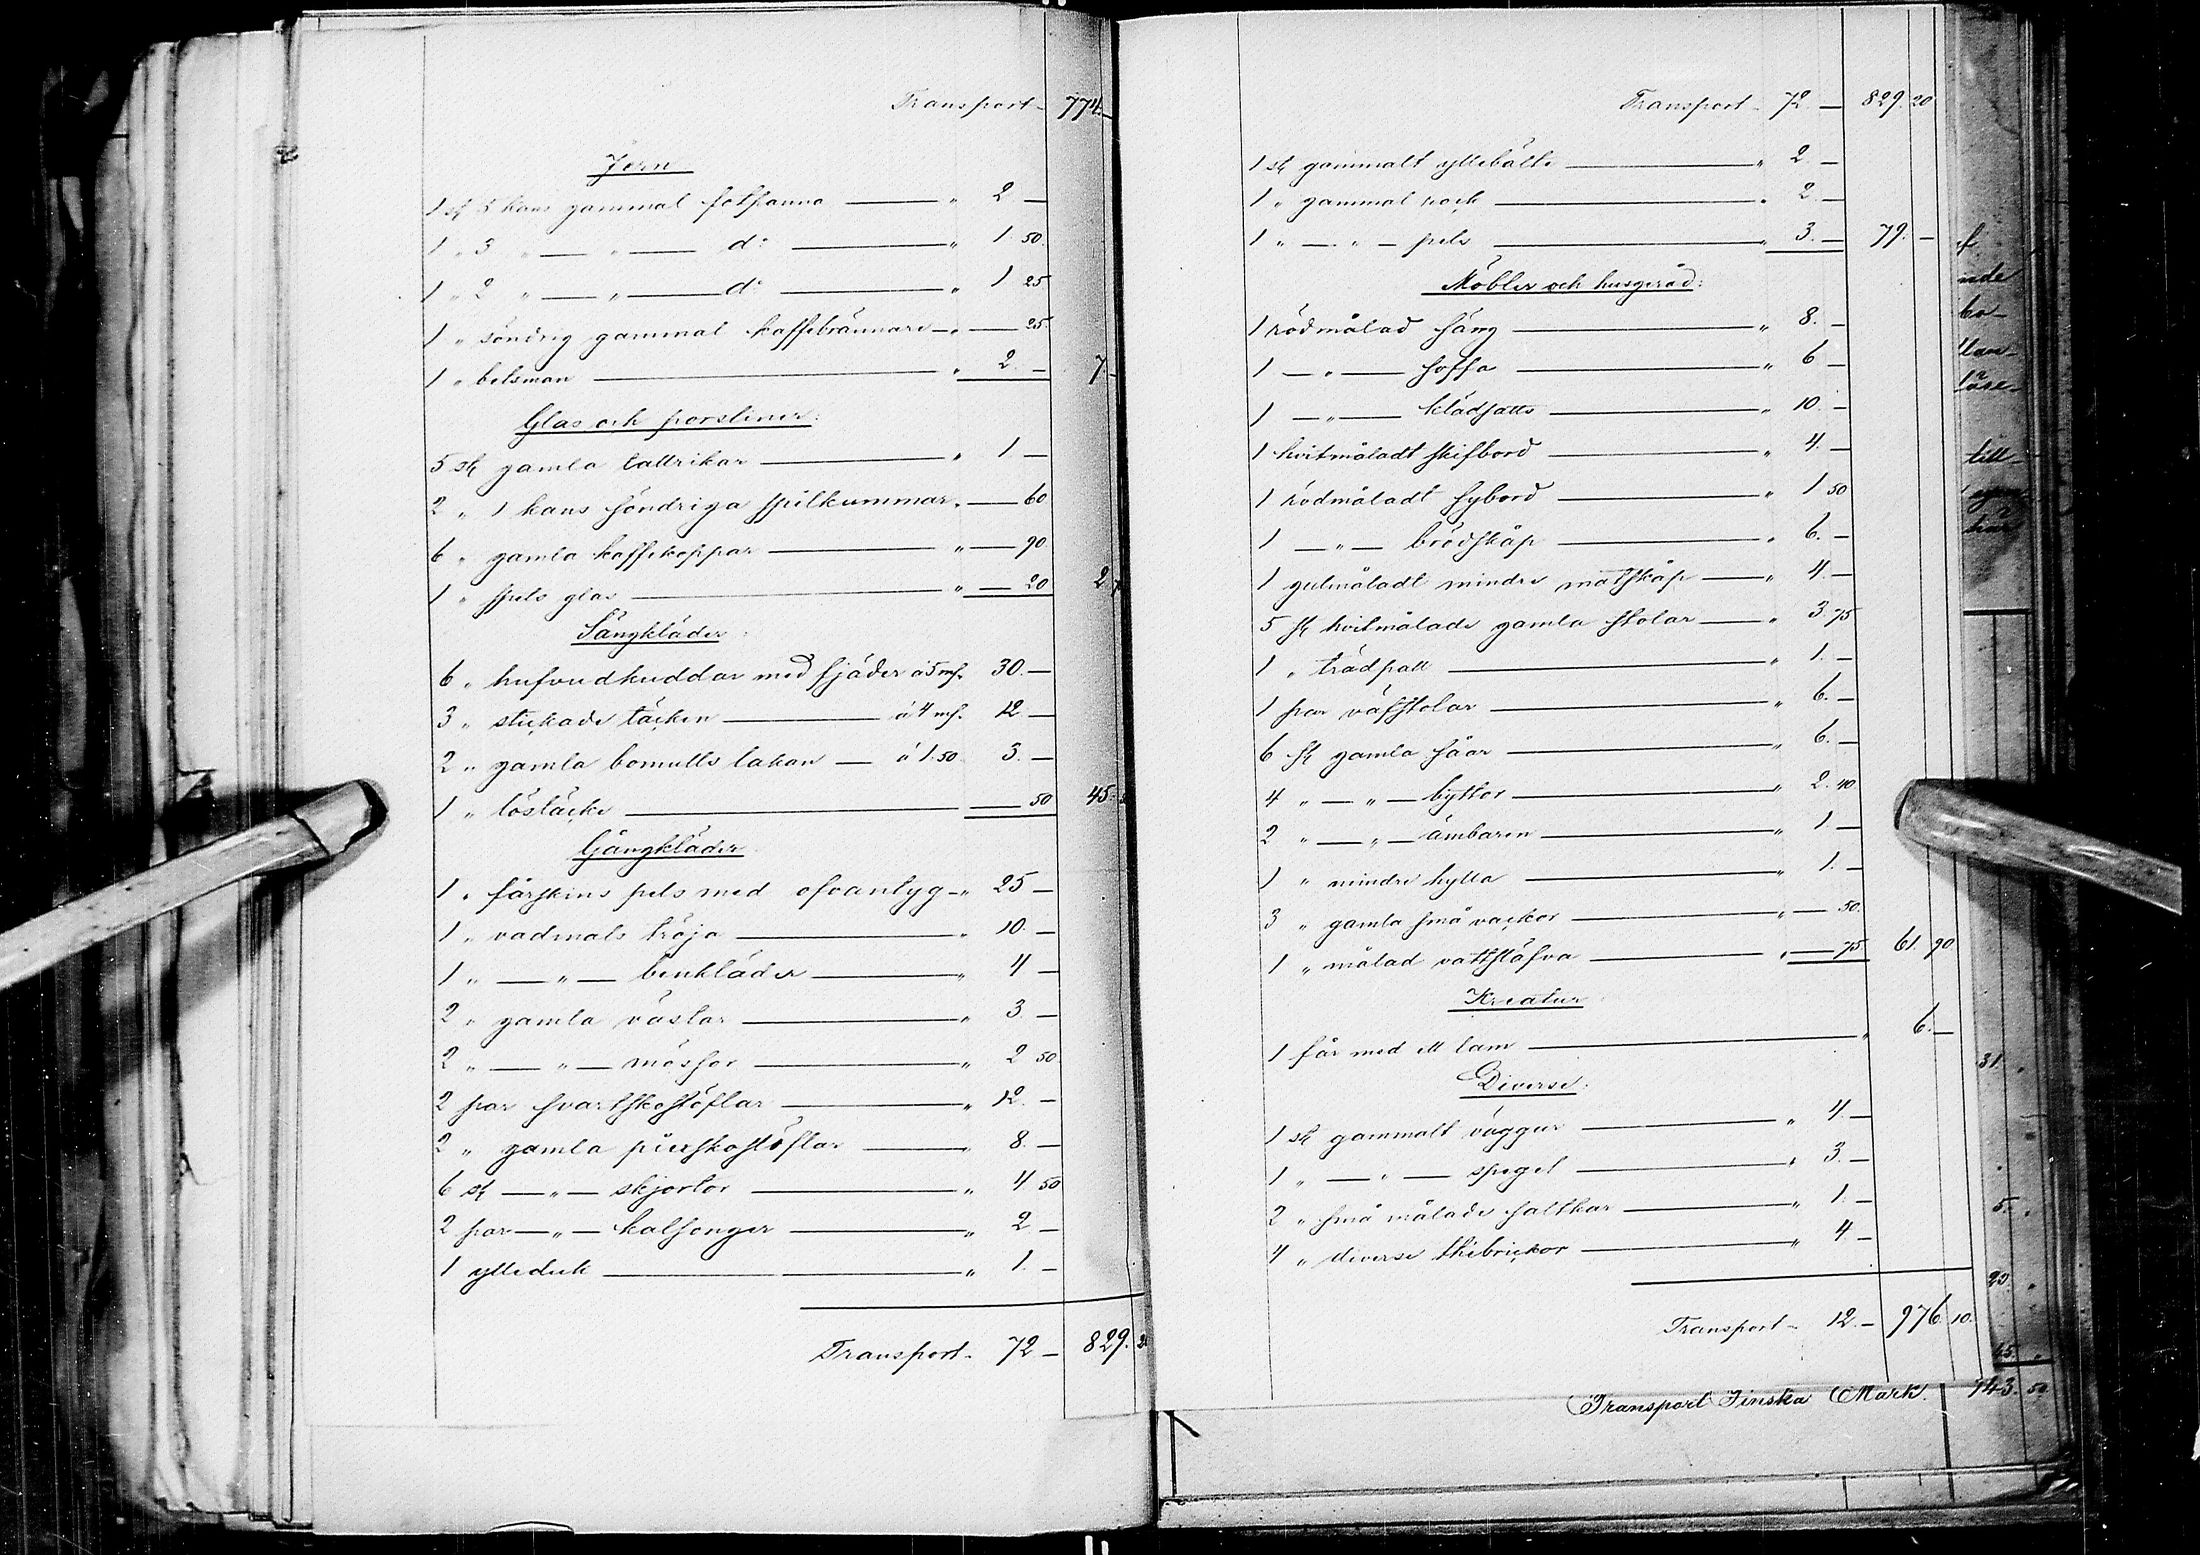 Transport 774.—
Jern
1 st 5 kans gammal fotpanna — " 2 —
1 " 3 " — " — d:o — " 1. 50.
1 " 2 " — " — d:o — " 1 25
1 " söndrig gammal kaffebrännare — " — 25.
1 " belsman — " 2. — 7.—
Glas och porsliner:
5 st gamla tallrikar — " 1 —
2 " 1 kans söndriga spilkummar " — 60
6 " gamla kaffekoppar — " — 90
1 " spets glas — " — 20 2 7
Sängkläder:
6 " hufvudkuddar med fjäder á 5 mf. 30.—
3 " stickade täcken — á 4 mf. 12 —
2 " gamla bomulls lakan — á 1.50 3.—
1 " löstäcke — 50 45.
Gångkläder
1 " fårskins pels med ofvantyg — " 25 —
1 " vadmals tröja — " 10.—
1 " — " — benkläder — " 4 —
2 " gamla västar — " 3.—
2 " — " — mössor — " 2 50
2 par svartskostöflar — " 12.—
2 " gamla pieuskostöflar — " 8.—
6 st — " — skjortor — " 4 50
2 par — " — kalsonger — " 2 —
1 ylleduk — " 1.—
Transport 72 — 829. 20
Transport 72.— 829. 20
1 st gammalt yllebälte — " 2.—
1 " gammal rock — " 2.—
1 " — " — pels — " 3.— 79.—
Möbler och husgeråd:
1 rödmålad säng — " 8.—
1 — " — soffa — " 6 —
1 — " — klädsatts — " 10.—
1 hvitmåladt skifbord — " 4.—
1 rödmåladt sybord — " 1 50
1 — " — brödskåp — " 6.—
1 gulmåladt mindre matskåp — " 4.—
5 st hvitmålade gamla stolar — " 3 75
1 " trädpall — " 1.—
1 par väfstolar — " 6.—
6 st gamla såar — " 6.—
4 " — " — byttor — " 2. 40
2 " — " — ämbaren — " 1.—
1 " mindre hylla — " 1.—
3 " gamla små vackor — " — 50.
1 " målad vattstäfva — " — 75 61. 90
Kreatur:
1 får med ett lam — " 6.—
Diverse:
1 st gammalt väggur — " 4 —
1 " — " — spegel — " 3.—
2 " små målade saltkar — " 1.—
4 " diverse thebrickor — " 4 —
Transport 12.— 976. 10.
Transport Finska Mark. 943. 50
till
31.
5.